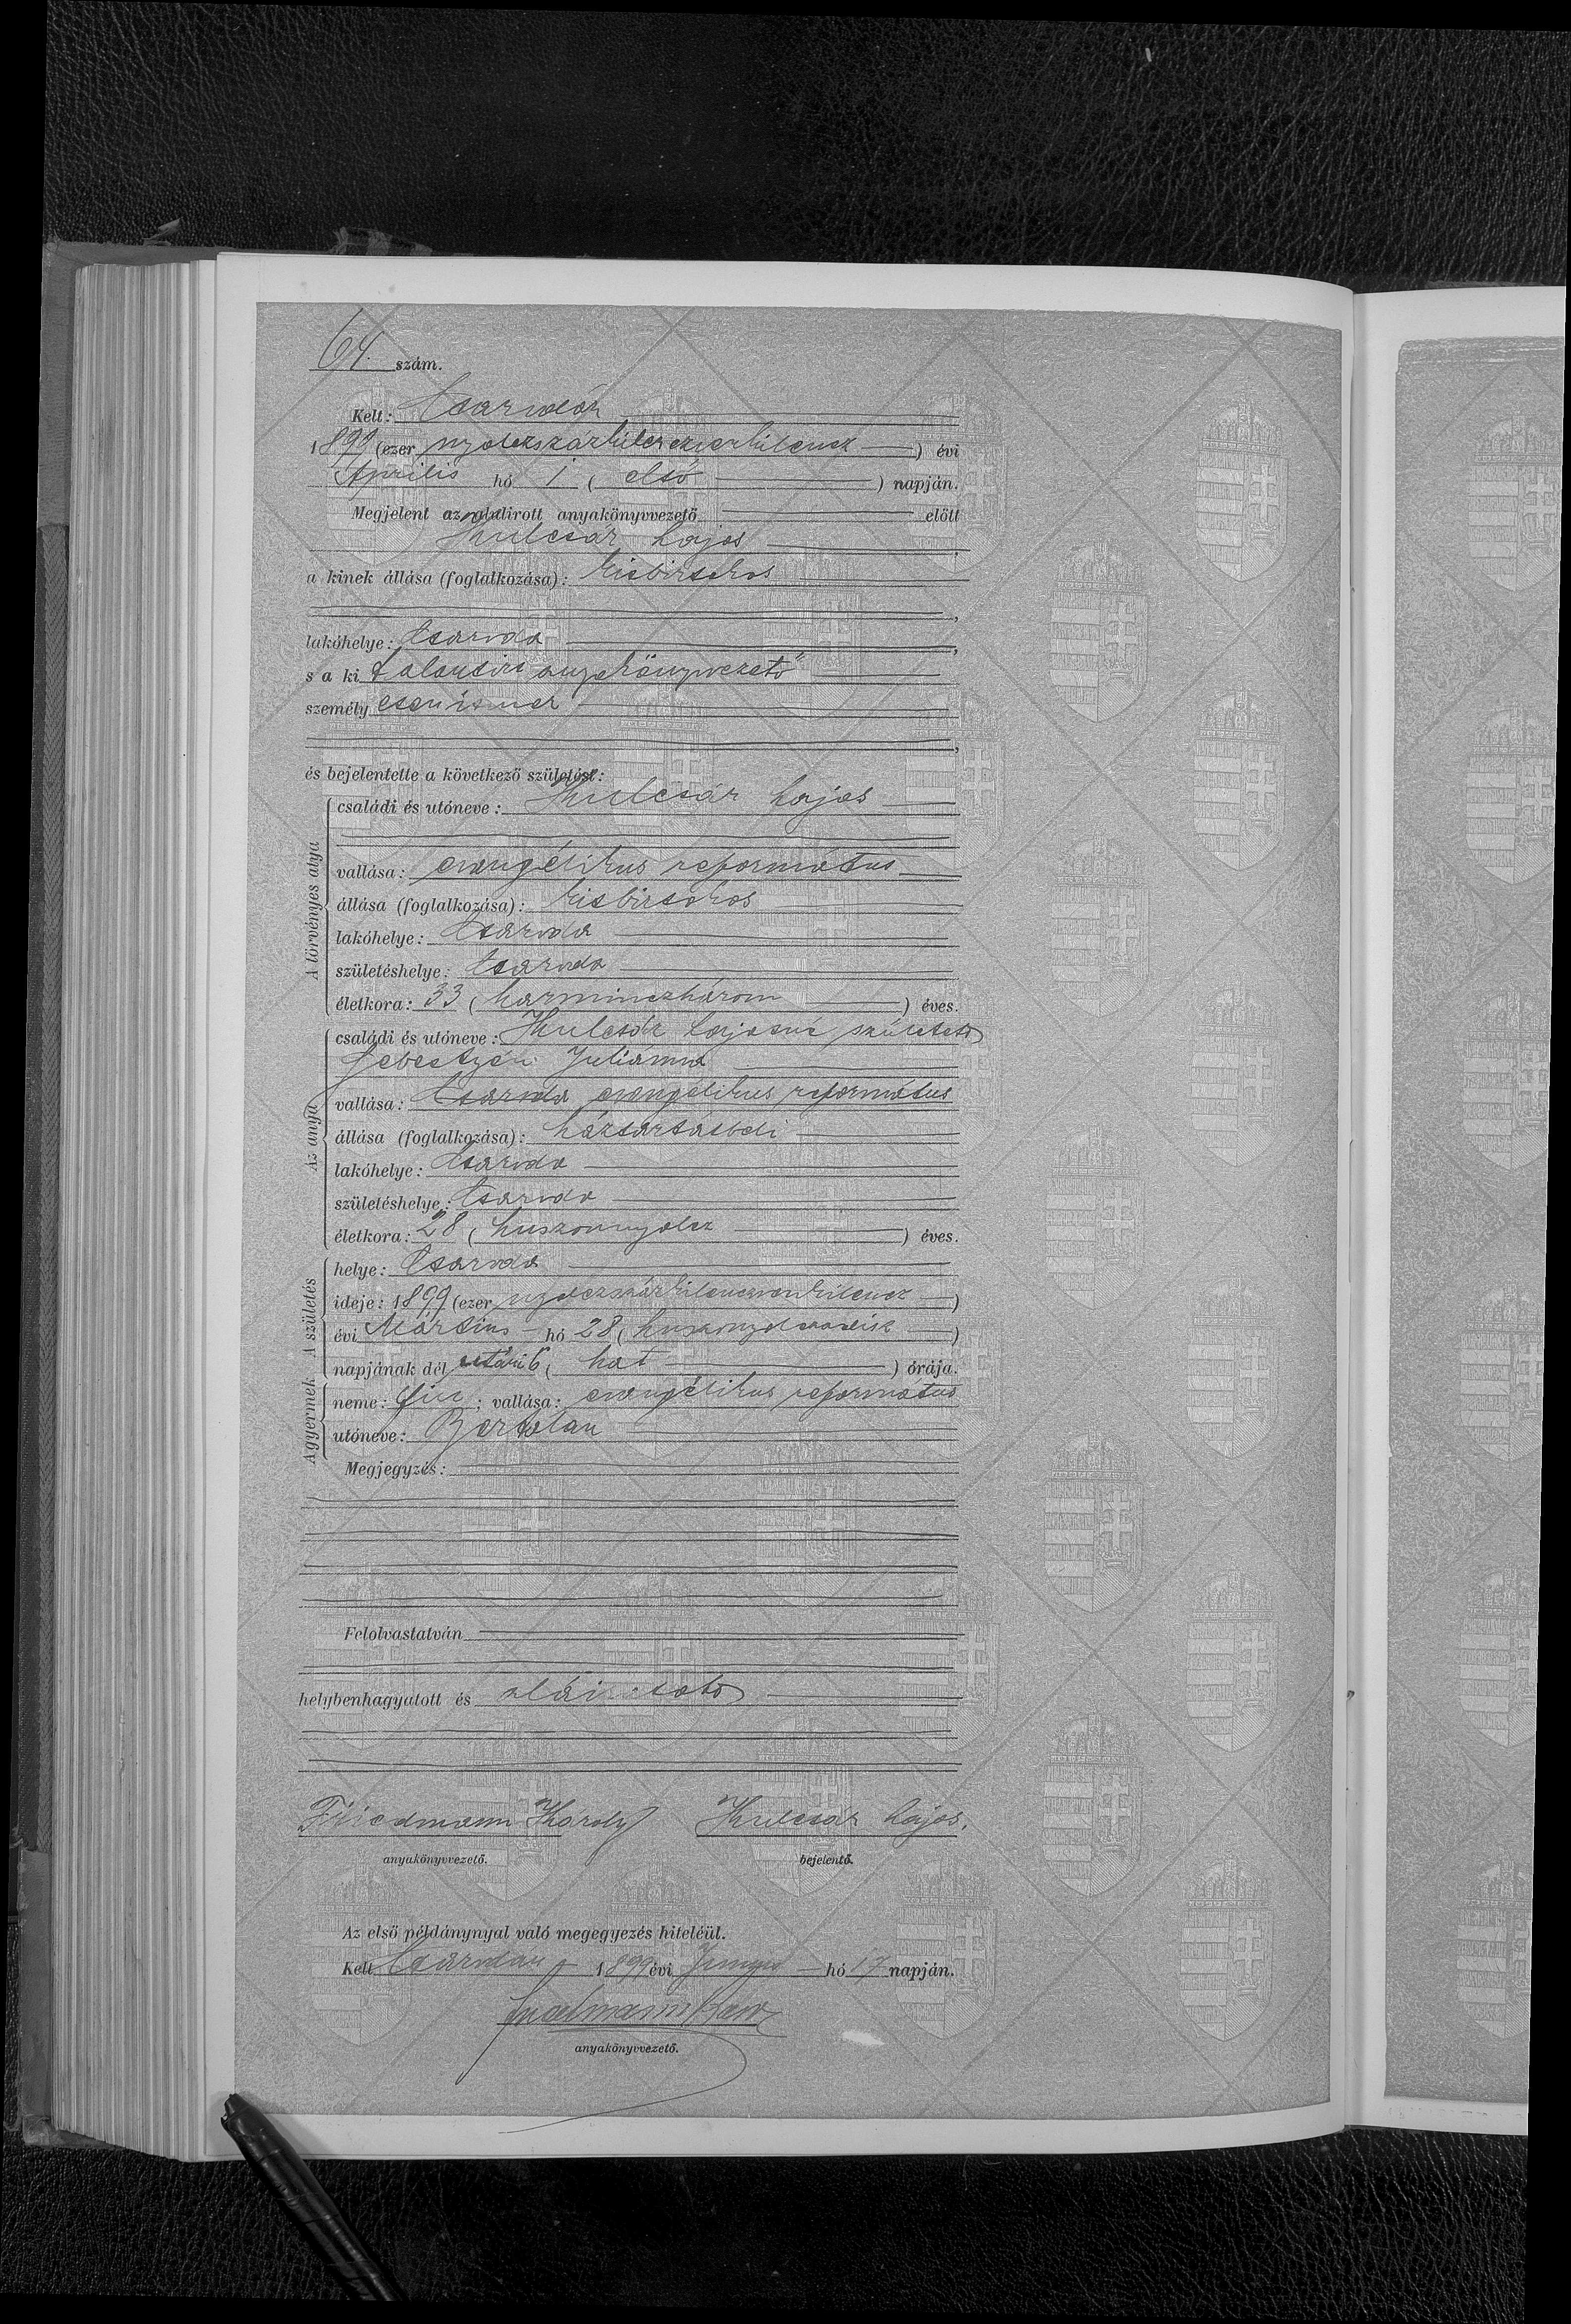 64. szám.
Kelt: Csarodán
1899 (ezer nyolczszázkilenczvenkilencz) évi
Április hó 1 (első) napján.
Megjelent az alulirott anyakönyvvezető előtt
Kulcsár Lajos,
a kinek állása (foglalkozása): kisbirtokos
lakóhelye: Csaroda,
s a ki
személy
és bejelentette a következő születést:
A törvényes atya
családi és utóneve: Kulcsár Lajos
vallása: evangélikus református
állása (foglalkozása): kisbirtokos
lakóhelye: Csaroda
születéshelye: Csaroda
életkora: 33 (harminczhárom) éves.
Az anya
családi és utóneve: Kulcsár Lajosné született
Sebestyén Juliánna
vallása: Csaroda evangélikus református
állása (foglalkozása): háztartásbeli
lakóhelye: Csaroda
születéshelye: Csaroda
életkora: 28 (huszonnyolcz) éves.
A születés
helye: Csaroda
ideje: 1899 (ezer nyolczszázkilenczvenkilencz)
évi Mártius hó 28 (huszonyolczadik)
napjának dél utáni 6 (hat) órája.
A gyermek
neme: fiu; vallása: evangélikus református
utóneve: Bertalan
Megjegyzés:
Felolvastatván
helybenhagyatott és aláiratott
Friedmann Károly Kulcsár Lajos.
anyakönyvvezető. bejelentő.
Az első példánynyal való megegyezés hiteléül.
Kelt Csarodán 1899 évi hó 17 napján.
anyakönyvvezető.